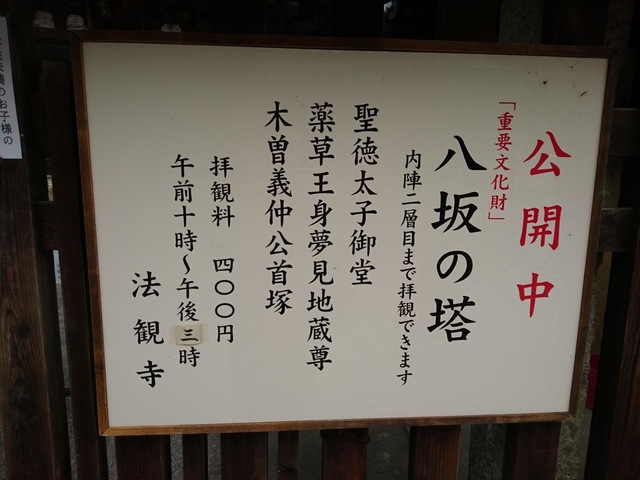 公開中
「重要文化財」
八坂の塔
内陣二層目まで拝観できます
聖徳太子御堂
薬草王身夢見地蔵尊
木曽義仲公首塚
拝観料 四〇〇円
午前十時～午後三時
法観寺
のお子様の